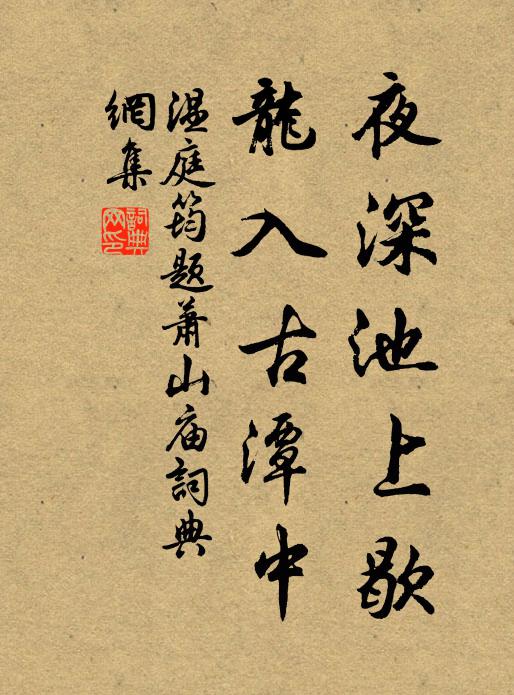 夜深池上歇
龍入古潭中
温庭筠題蕭山庙詞典
網集
詞典
网印